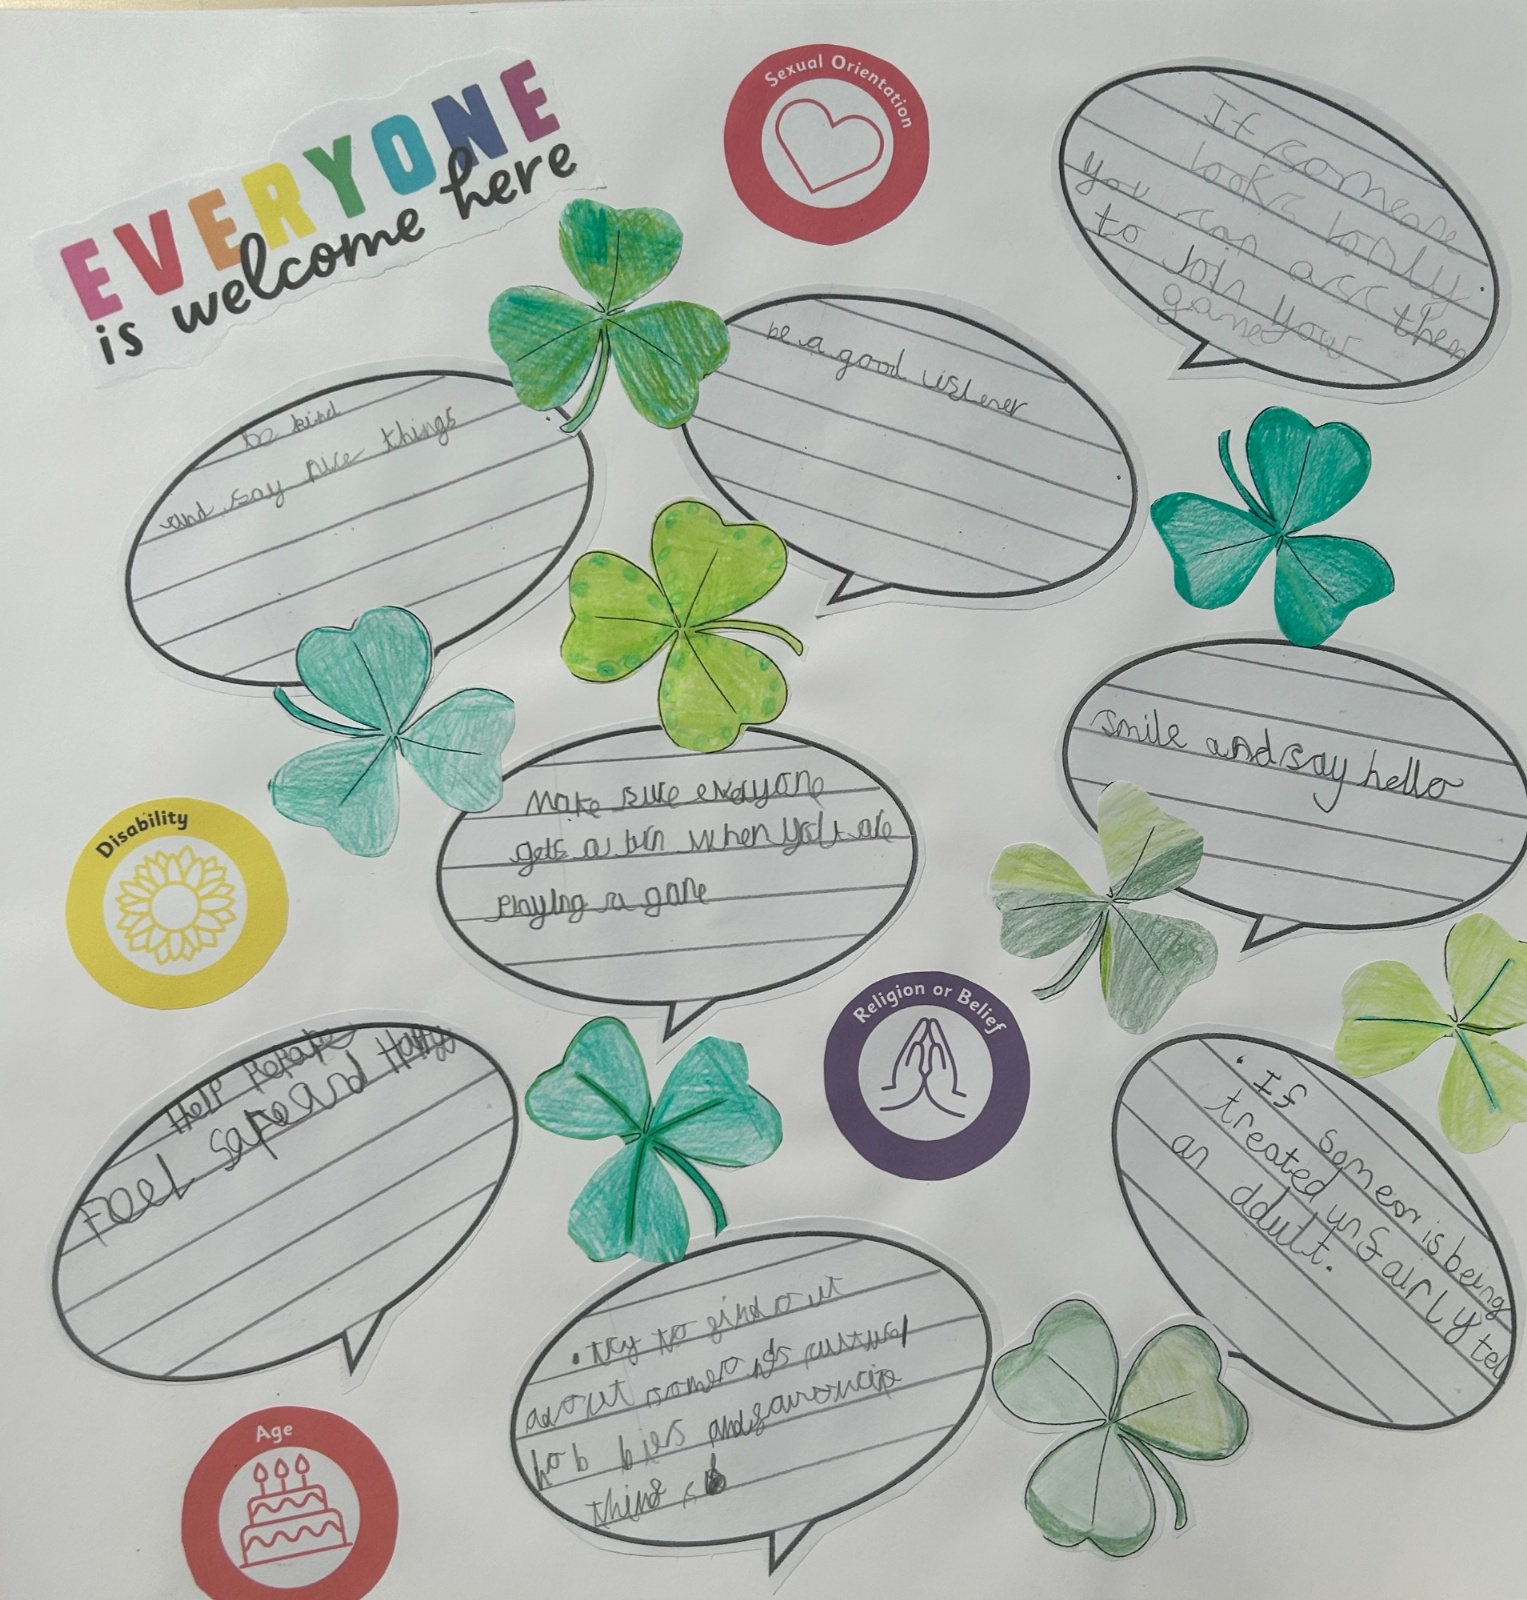 EVERYONE
is welcome here
Sexual Orientation
If someone
looks lonly
you can ascc them
to join your
games
be kind
and say nice things
be a good listener
smile and say hello
Make sure everyone
gets a turn when you are
playing a game
Disability
Religion or Belief
Help
Feel safe and Happy
. If someon is being
treated unfairly tell
an addult.
. try to find out
about cultural
hob bies and
things
Age